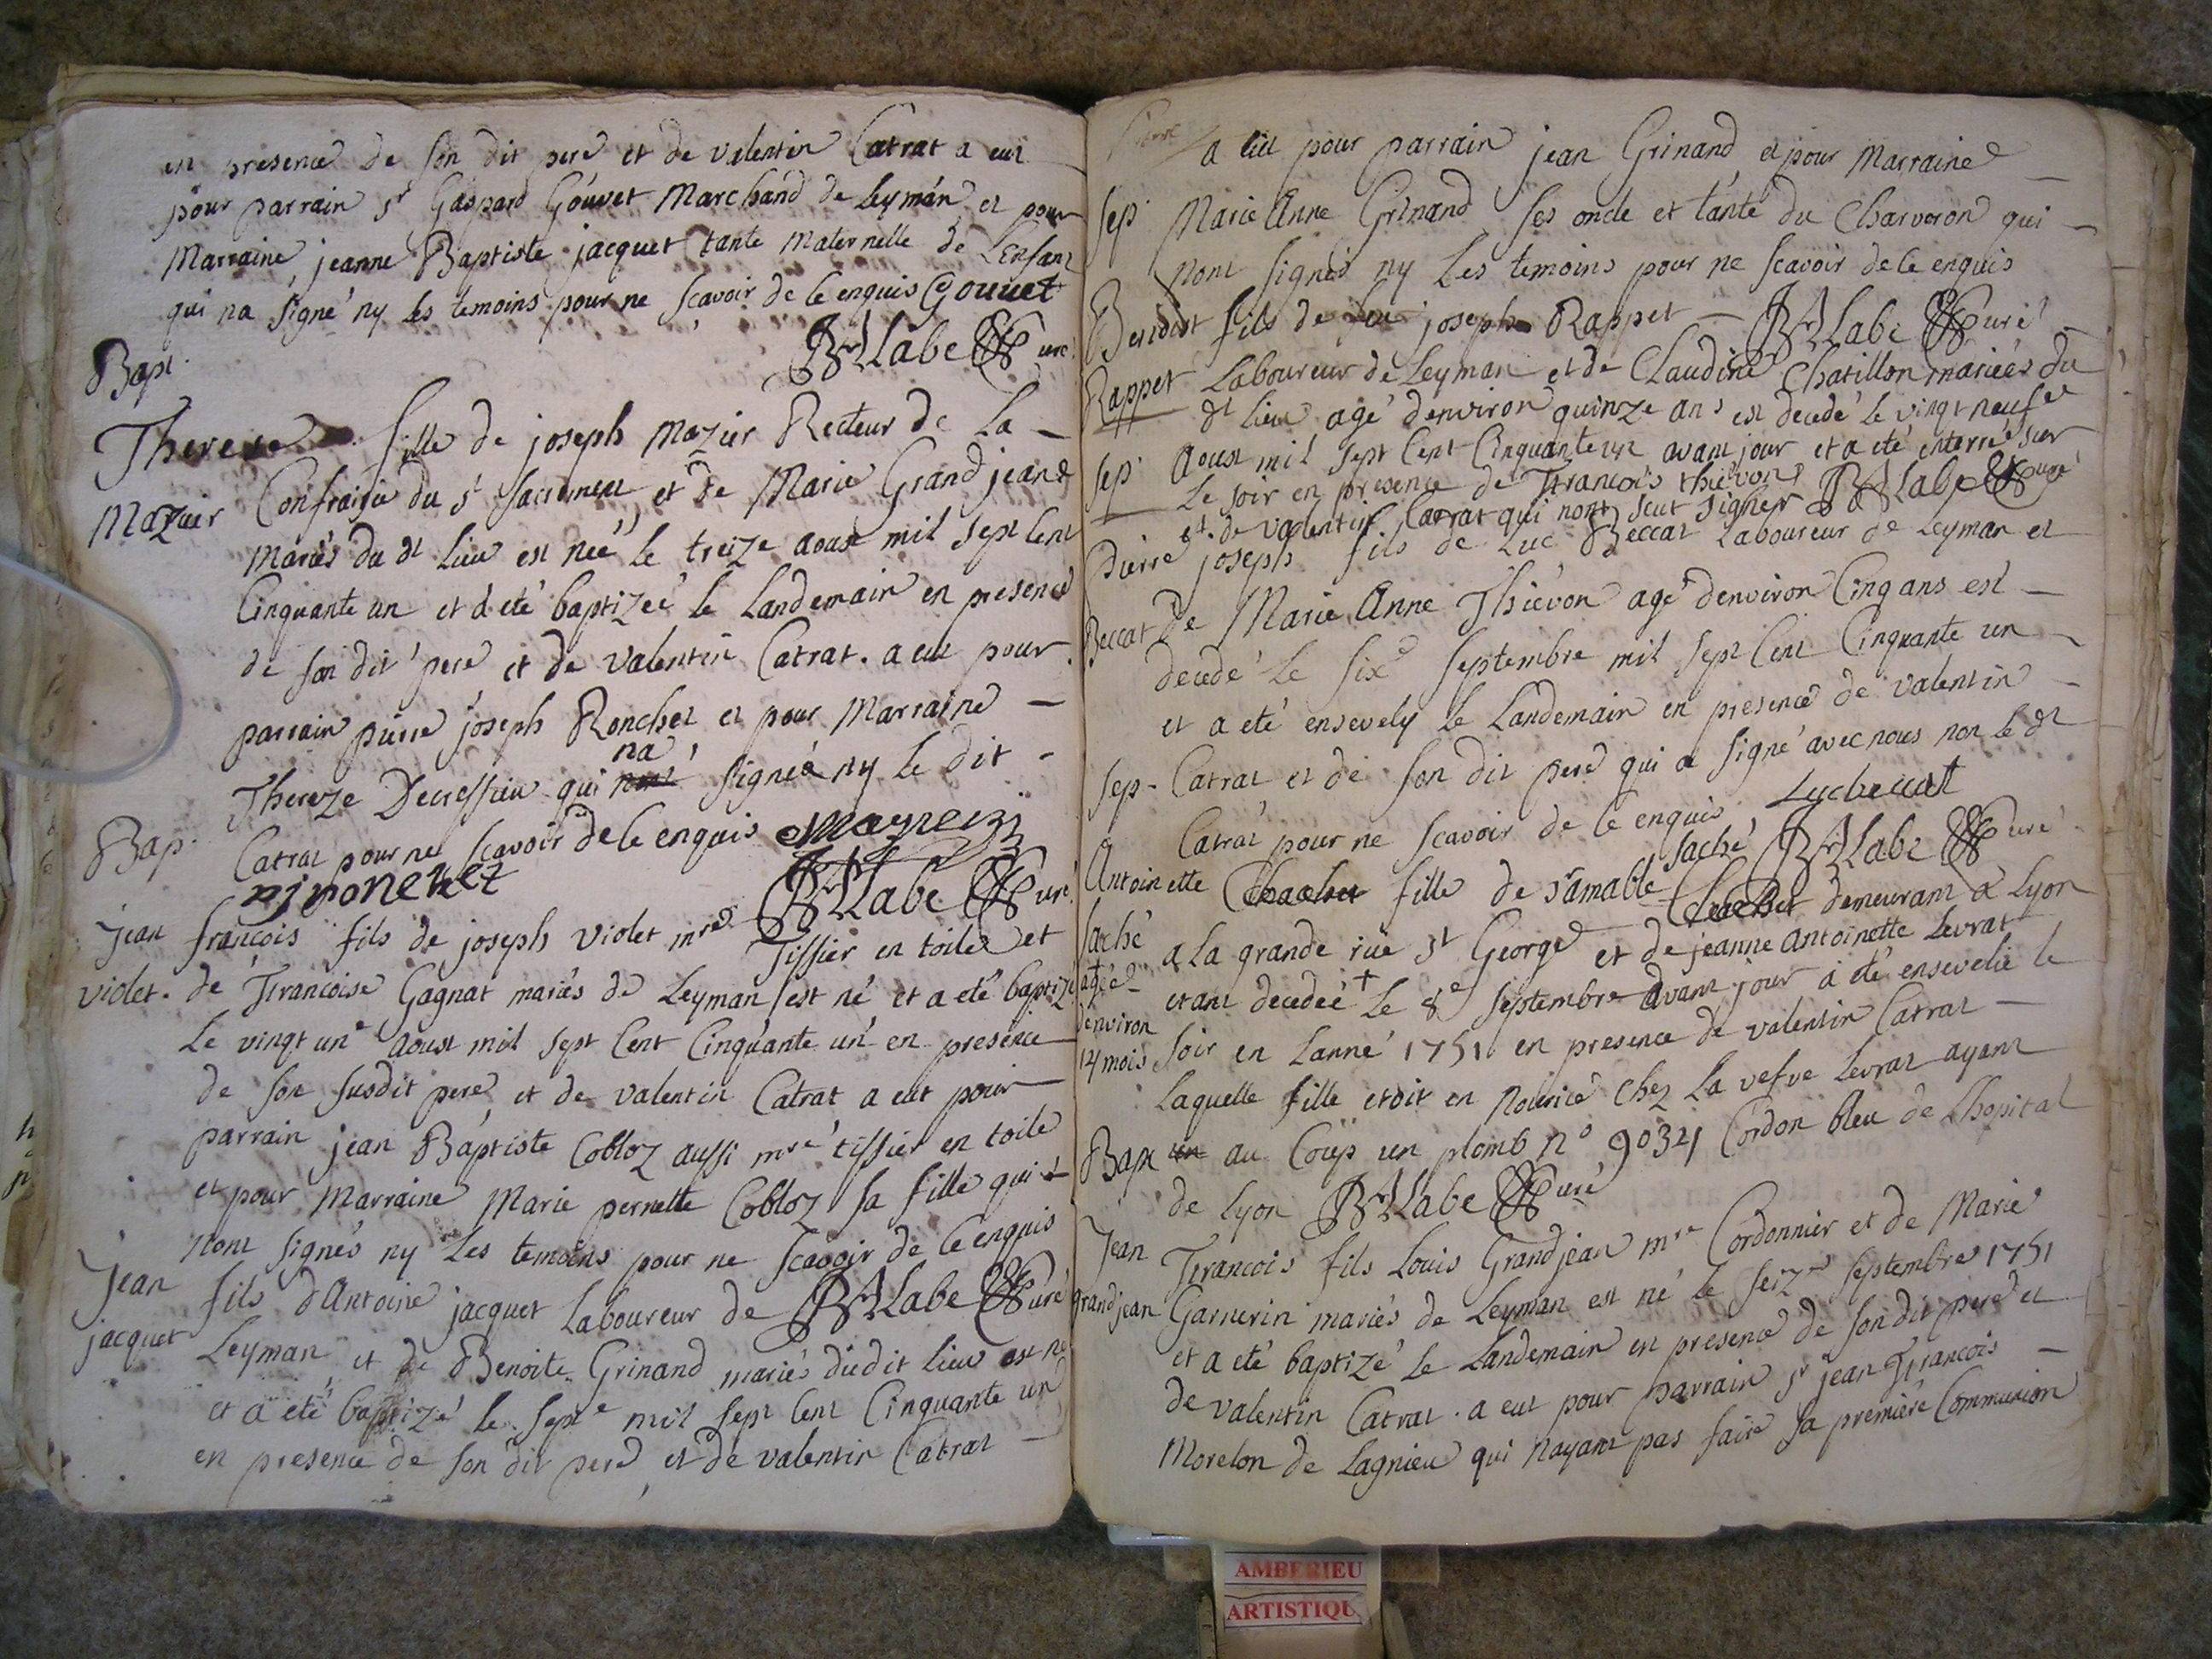 en presence de son dit pere et de valentin Catrat a eut
pour parrain sr Gaspard Gouvet Marchand de Leyman et pour
Marraine jeanne Baptiste jacquet tante maternelle de Lenfant
qui na signé ny les temoins pour ne scavoir de ce enquis Gouuet
BM Labe Curé
Bapt.
Therese fille de joseph Mazuir Recteur de La
Mazuir Confrairie du st sacrement et de Marie Grandjean
mariés du dt Lieu est née le treize aoust mil sept cent
Cinquante un et a eté baptizée le Landemain en presence
de son dit pere et de valentin Catrat . a eut pour
parrain pierre joseph Ronchet et pour Marraine
na
Thereze Decressieu qui nont signée ny le dit
Bap.
Catrat pour ne scavoir de ce enquis
pjronchet BM Labe Curé
jean françois fils de joseph violet mre Tissier en toile et
violet. de Francoise Gagnat mariés de Leyman est né et a eté baptizé
Le vingt une aoust mil sept Cent Cinquante un en presence
de son susdit pere et de valentin Catrat a eut pour
parrain jean Baptiste Cobloz aussi mre tissier en toile
et pour Marraine Marie pernette Cobloz sa fille qui
nont signés ny Les temoins pour ne scavoir de ce enquis
BM Labe Curé
Jean fils dAntoine jacquet Laboureur de
jacquet Leyman et de Benoite Grinand mariés dudit lieu est né
et a eté baptizé le septe mil sept cent Cinquante un
en presence de son dit pere et de valentin Catrat
a eut pour parrain jean Grinand et pour Marraine
Sep. Marie Anne Grinand ses oncle et tante du Charveron qui
nont signés ny Les temoins pour ne scavoir de ce enquis
BM Labe Curé
Benoist fils de feu joseph Rappet
Rappet Laboureur de Leyman et de Claudine Chatillon mariés du
dt lieu agé denviron quinze ans est decedé le vingt neufe
Sep. Aoust mil sept Cent Cinquante un avant jour et a eté enterré sur
Le soir en presence de Francois thievon
et de valentin Catrat qui nont scut signer BM Labe Curé
Pierre joseph fils de Luc Beccat Laboureur de Leyman et
Beccat de Marie Anne Thievon agé denviron Cinq ans est
decedé Le sixe septembre mil sept Cent Cinquante un
et a eté ensevely le Landemain en presence de valentin
Sep. Catrat et de son dit pere qui a signé avec nous non le dt
Catrat pour ne scavoir de ce enquis Lucbeccat
BM Labe Curé
saché
Antoinette fille de sr amable demeurant a Lyon
Saché a La grande rüe st George et de jeanne Antoinette Levrat
agée etant decedée + Le 8e septembre avant jour a eté ensevelie le
denviron
14 mois soir en Lanné 1751 en presence de valentin Catrat
Laquelle fille etoit en Nourice Chez La vefve Levrat ayant
Bapt un au Coüp un plomb no 90321 Cordon bleu de Lhopital
de Lyon BM Labe Curé
Jean Francois fils Louis Grandjean mre Cordonnier et de Marie
grandjean Garnerin mariés de Leyman est né le seize septembre 1751
et a eté baptizé le Landemain en presence de son dit pere et
de valentin Catrat . a eut pour parrain sr jean Francois
Morelon de Lagnieu qui Nayant pas faire sa premiere Communion
AMBERIEU
ARTISTIQU